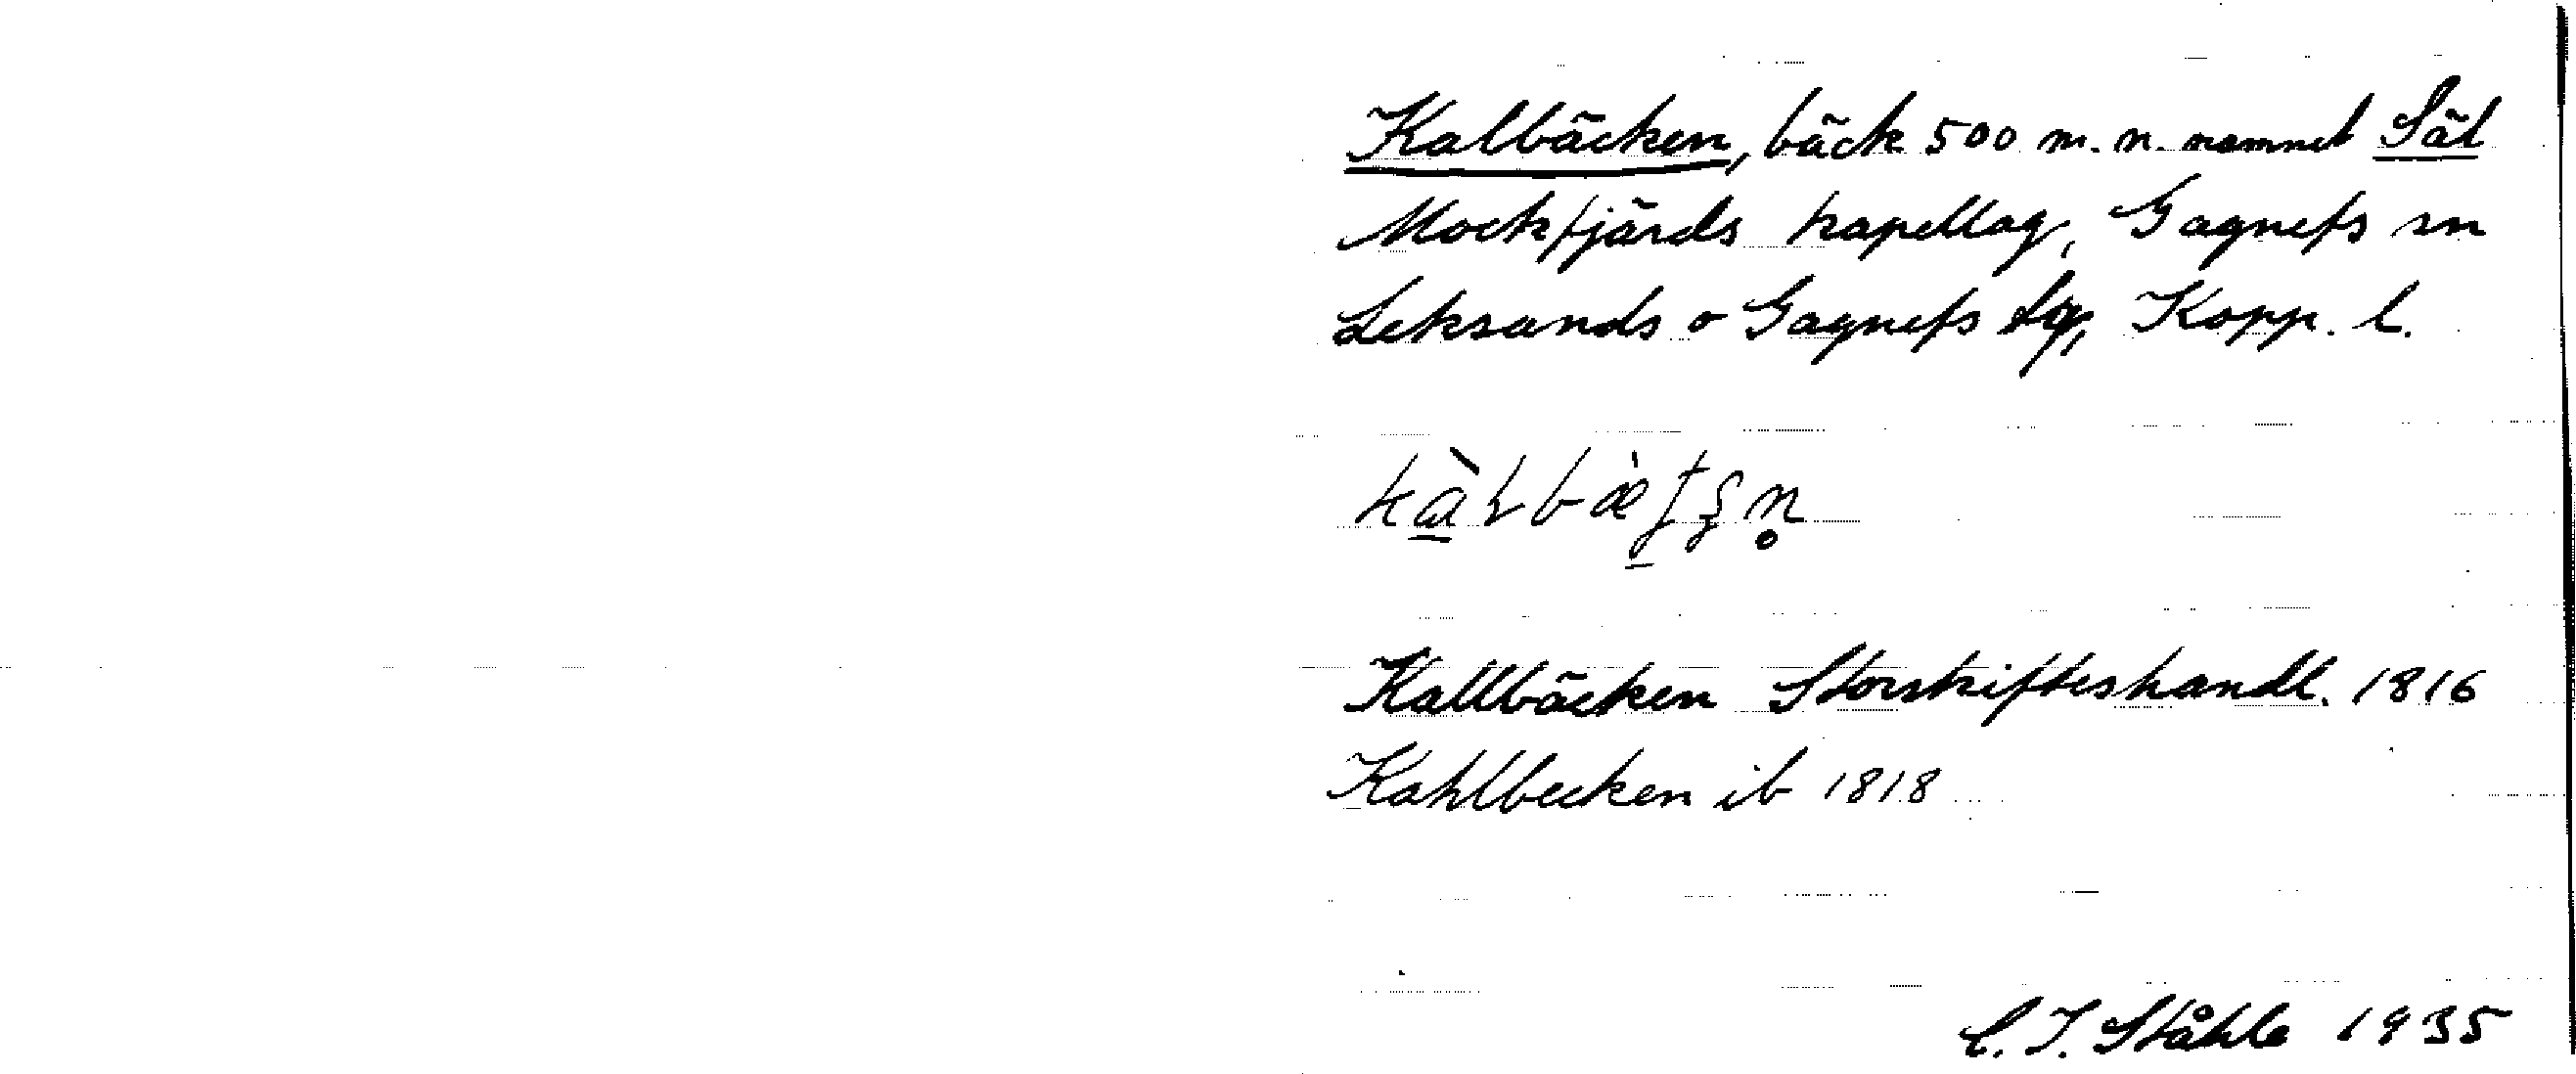 Kalbäcken, bäck 500 m. n. namnet Säl
Mockfjärds kapellag, Gagnefs sn
Leksands o Gagnefs tg, Kopp. l.
Kallbäcken Storskifteshandl. 1816
Kahlbecken ib 1818
C. I. Ståhle 1935